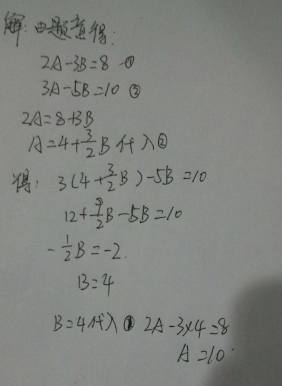 解:由题意得:
2A-3B=8 ①
3A-5B=10 ②
2A=8+3B
A=4+\frac{3}{2}B 代入②
得: 3(4+\frac{3}{2}B)-5B=10
12+\frac{9}{2}B-5B=10
-\frac{1}{2}B=-2
B=4
B=4代入① 2A-3×4=8
A=10